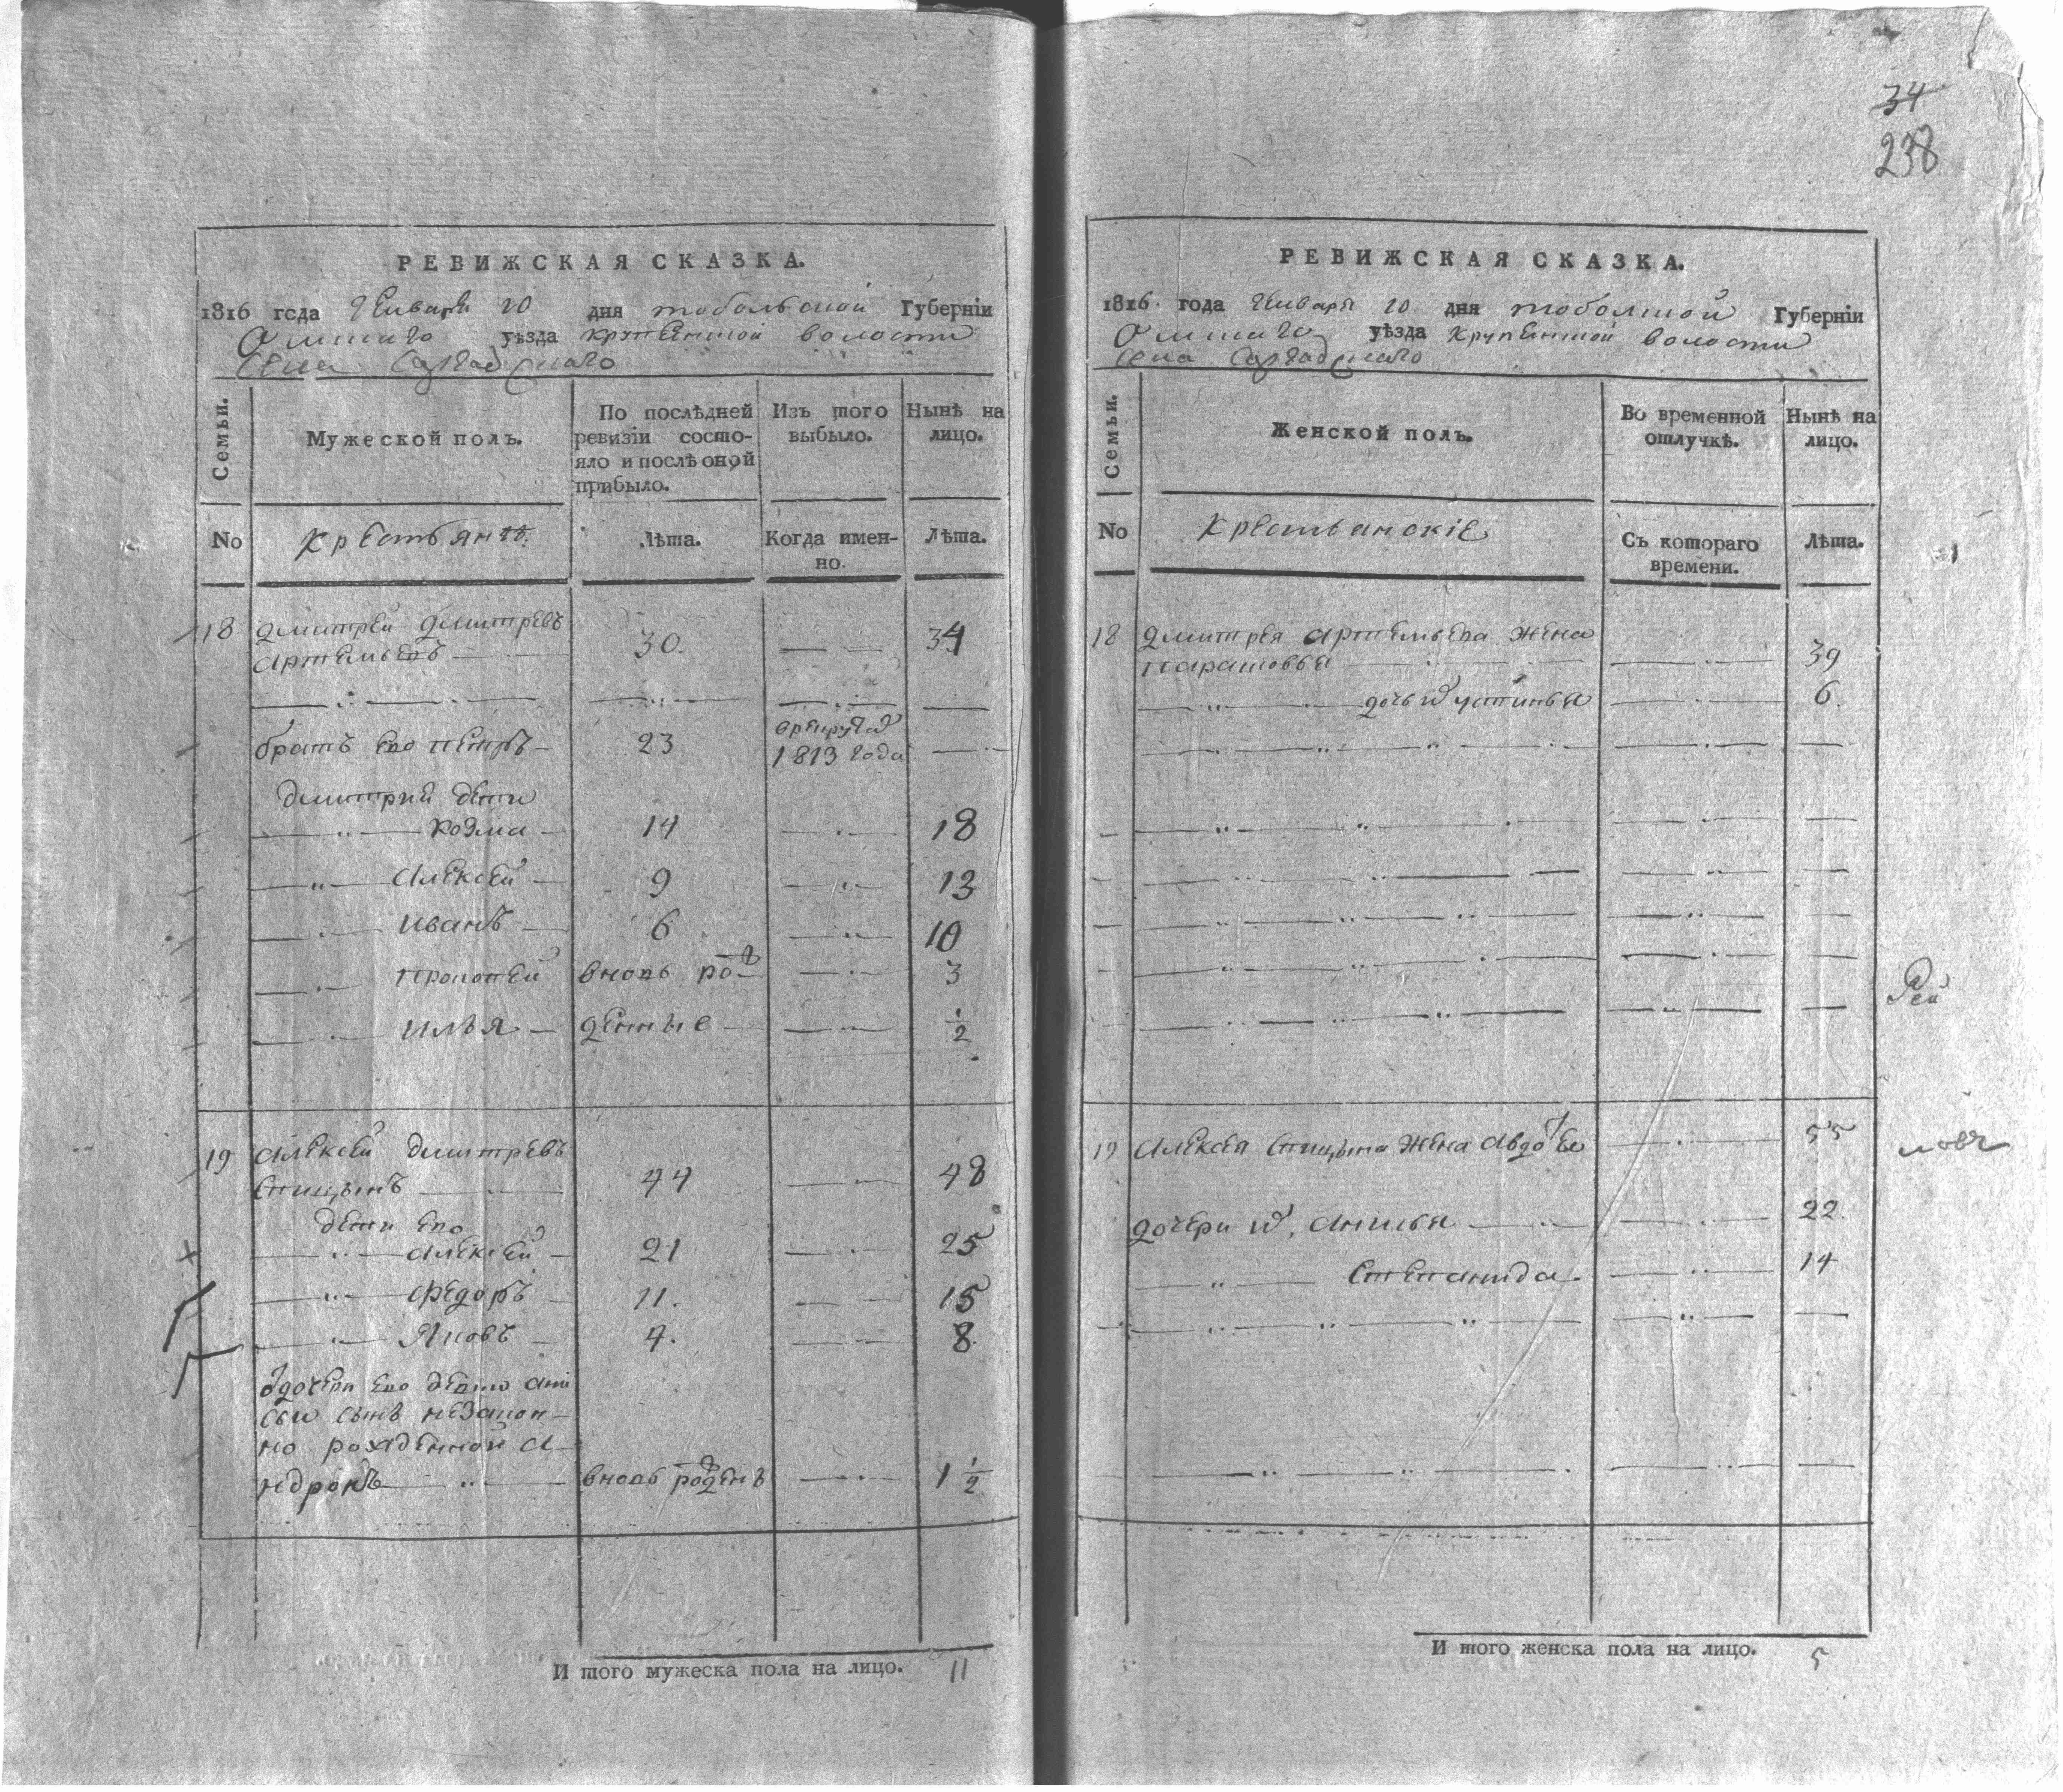 34
238
РЕВИЖСКАЯ СКАЗКА.
1816 года Генваря 10 дня тобольской Губерніи
Омшаго уѣзда крупенской волости
села Саргадскаго
Семьи.
Мужеской полъ.
По послѣдней ревизіи состояло и послѣ оной прибыло.
Изъ того выбыло.
Нынѣ на лицо.
No
крестьянѣ
Лѣта.
Когда именно.
Лѣта.
18 дмитрей дмитревъ
артемьевъ 30. 34
братъ его петръ 23
1813 года
дмитрий дети
козма 14 18
алексей 9 13
иванъ 6 10
прокопей вновь ро 3
илья денные 1/2
19 алексей дмитревъ
спицынъ 44 48
дети его
алексей 21 25
федоръ 11. 15
Яковъ 4. 8.
дочери его
сынъ незакон
но рожденной а
ндронъ вновь роденъ 1 1/2
И того мужеска пола на лицо. 11
РЕВИЖСКАЯ СКАЗКА.
1816. года Генваря 10 дня тоболской Губерніи
Омшаго уѣзда крупенской волости
села Саргадскаго
Семьи.
Женской полъ.
Во временной отлучкѣ.
Нынѣ на лицо.
No
крестьянскіе
Съ котораго времени.
Лѣта.
18 дмитрея артемьева жена
парасковья 39
дочь устинья 6.
19 алексея спицына жена авдотья 55
дочери анисья 22.
степанида. 14
И того женска пола на лицо. 5